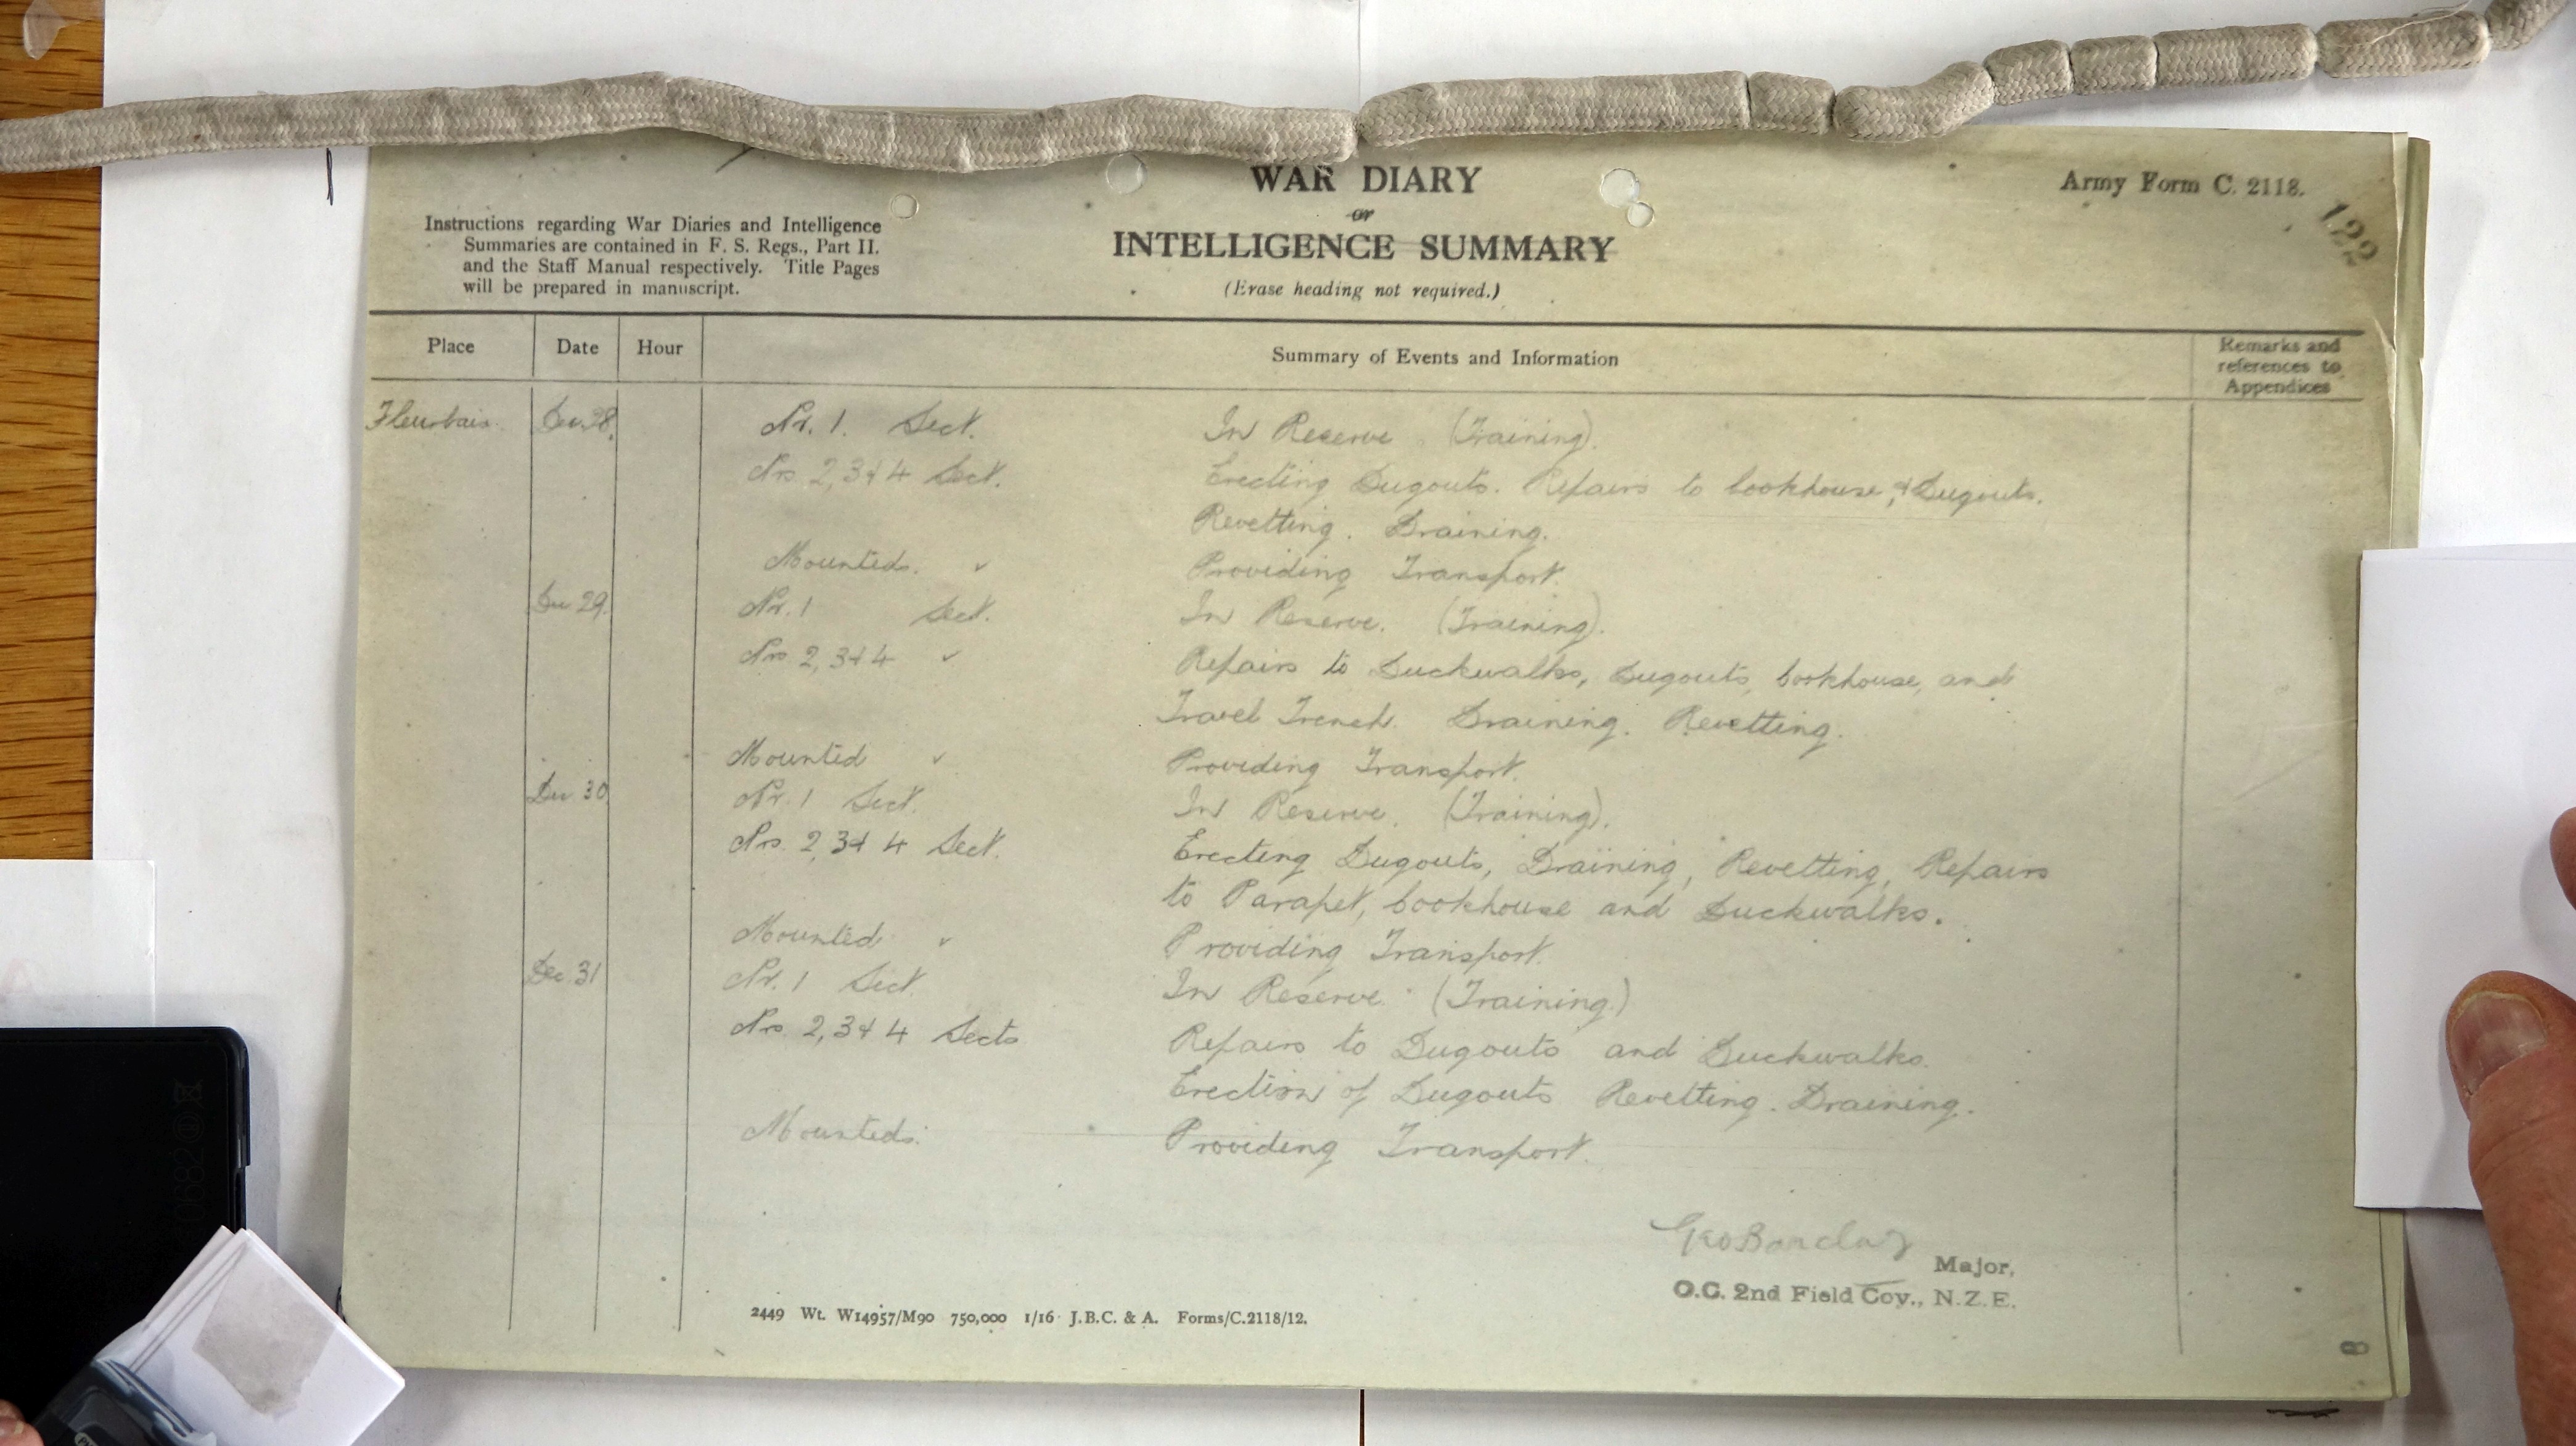 WAR DIARY
or
INTELLIGENCE SUMMARY
(Erase heading not required.)
Army Form C. 2118.
122
Instructions regarding War Diaries and Intelligence
Summaries are contained in F. S. Regs., Part II.
and the Staff Manual respectively. Title Pages
will be prepared in manuscript.
Place Date Hour Summary of Events and Information Remarks and references to Appendices
Fleurbaix Dec 28. Nr. 1. Sect. In Reserve. (Training).
Nrs. 2, 3 & 4 Sect. Erecting Dugouts. Repairs to Cookhouse, & Dugouts.
Revetting. Draining.
Mounted. " Providing Transport.
Dec 29. Nr. 1 Sect. In Reserve. (Training).
Nrs. 2, 3 & 4 " Repairs to Duckwalks, Dugouts, Cookhouse, and
Travel Trench. Draining. Revetting.
Mounted " Providing Transport.
Dec. 30 Nr. 1 Sect. In Reserve. (Training).
Nrs. 2, 3 & 4 Sect. Erecting Dugouts, Draining, Revetting, Repairs
to Parapet, Cookhouse and Duckwalks.
Mounted " Providing Transport.
Dec. 31 Nr. 1 Sect. In Reserve. (Training.)
Nrs. 2, 3 & 4 Sects Repairs to Dugouts and Duckwalks.
Erection of Dugouts Revetting. Draining.
Mounteds. Providing Transport.
Geo Barclay
Major,
O.C. 2nd Field Coy., N.Z.E.
2449 Wt. W14957/M90 750,000 1/16 J.B.C. & A. Forms/C.2118/12.
8